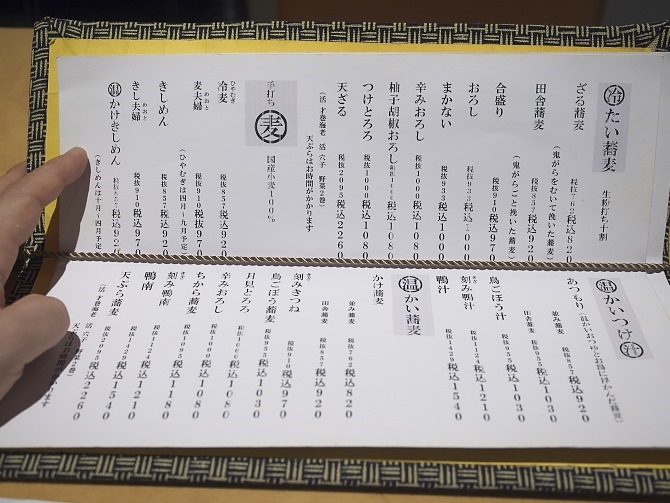 冷たい蕎麦 生粉打ち十割
ざる蕎麦 税抜762税込820
(鬼がらをむいて挽いた蕎麦)
田舎蕎麦 税抜852税込920
(鬼がらごと挽いた蕎麦)
合盛り 税抜910税込970
おろし 税抜933税込1000
まかない 税抜933税込1000
辛みおろし 税抜1000税込1080
柚子胡椒おろし 税込1080
つけとろろ 税抜1000税込1080
天ざる 税抜2095税込2260
(活 才巻海老 活 穴子 野菜2巻)
天ぷらはお時間がかかります
手打ち 麦 国産小麦100%
ひやむぎ
冷麦 税抜857税込920
めおと
麦夫婦 税抜910税込970
(ひやむぎは四月〜九月予定)
きしめん 税抜857税込920
めおと
きし夫婦 税抜910税込970
温かけきしめん 税込920
(きしめんは十月〜四月予定)
温かいつけ汁
あつもり(温かいおつゆとお湯に浮かんだ蕎麦)
並み蕎麦 税抜857税込920
田舎蕎麦 税抜955税込1030
鳥ごぼう汁 税抜955税込1030
刻み鴨汁 税抜1124税込1210
鴨汁 税抜1429税込1540
温かい蕎麦
かけ蕎麦 並み蕎麦 税抜762税込820
田舎蕎麦 税抜852税込920
刻みきつね 税抜910税込970
鳥ごぼう蕎麦 税抜955税込1030
月見とろろ 税込1080
辛みおろし 税抜1000税込1080
ちから蕎麦 税込1180
刻み鴨南 税抜1124税込1210
鴨南 税抜1429税込1540
天ぷら蕎麦 税抜2095税込2260
(活 才巻海老 活 穴子 野菜2巻)